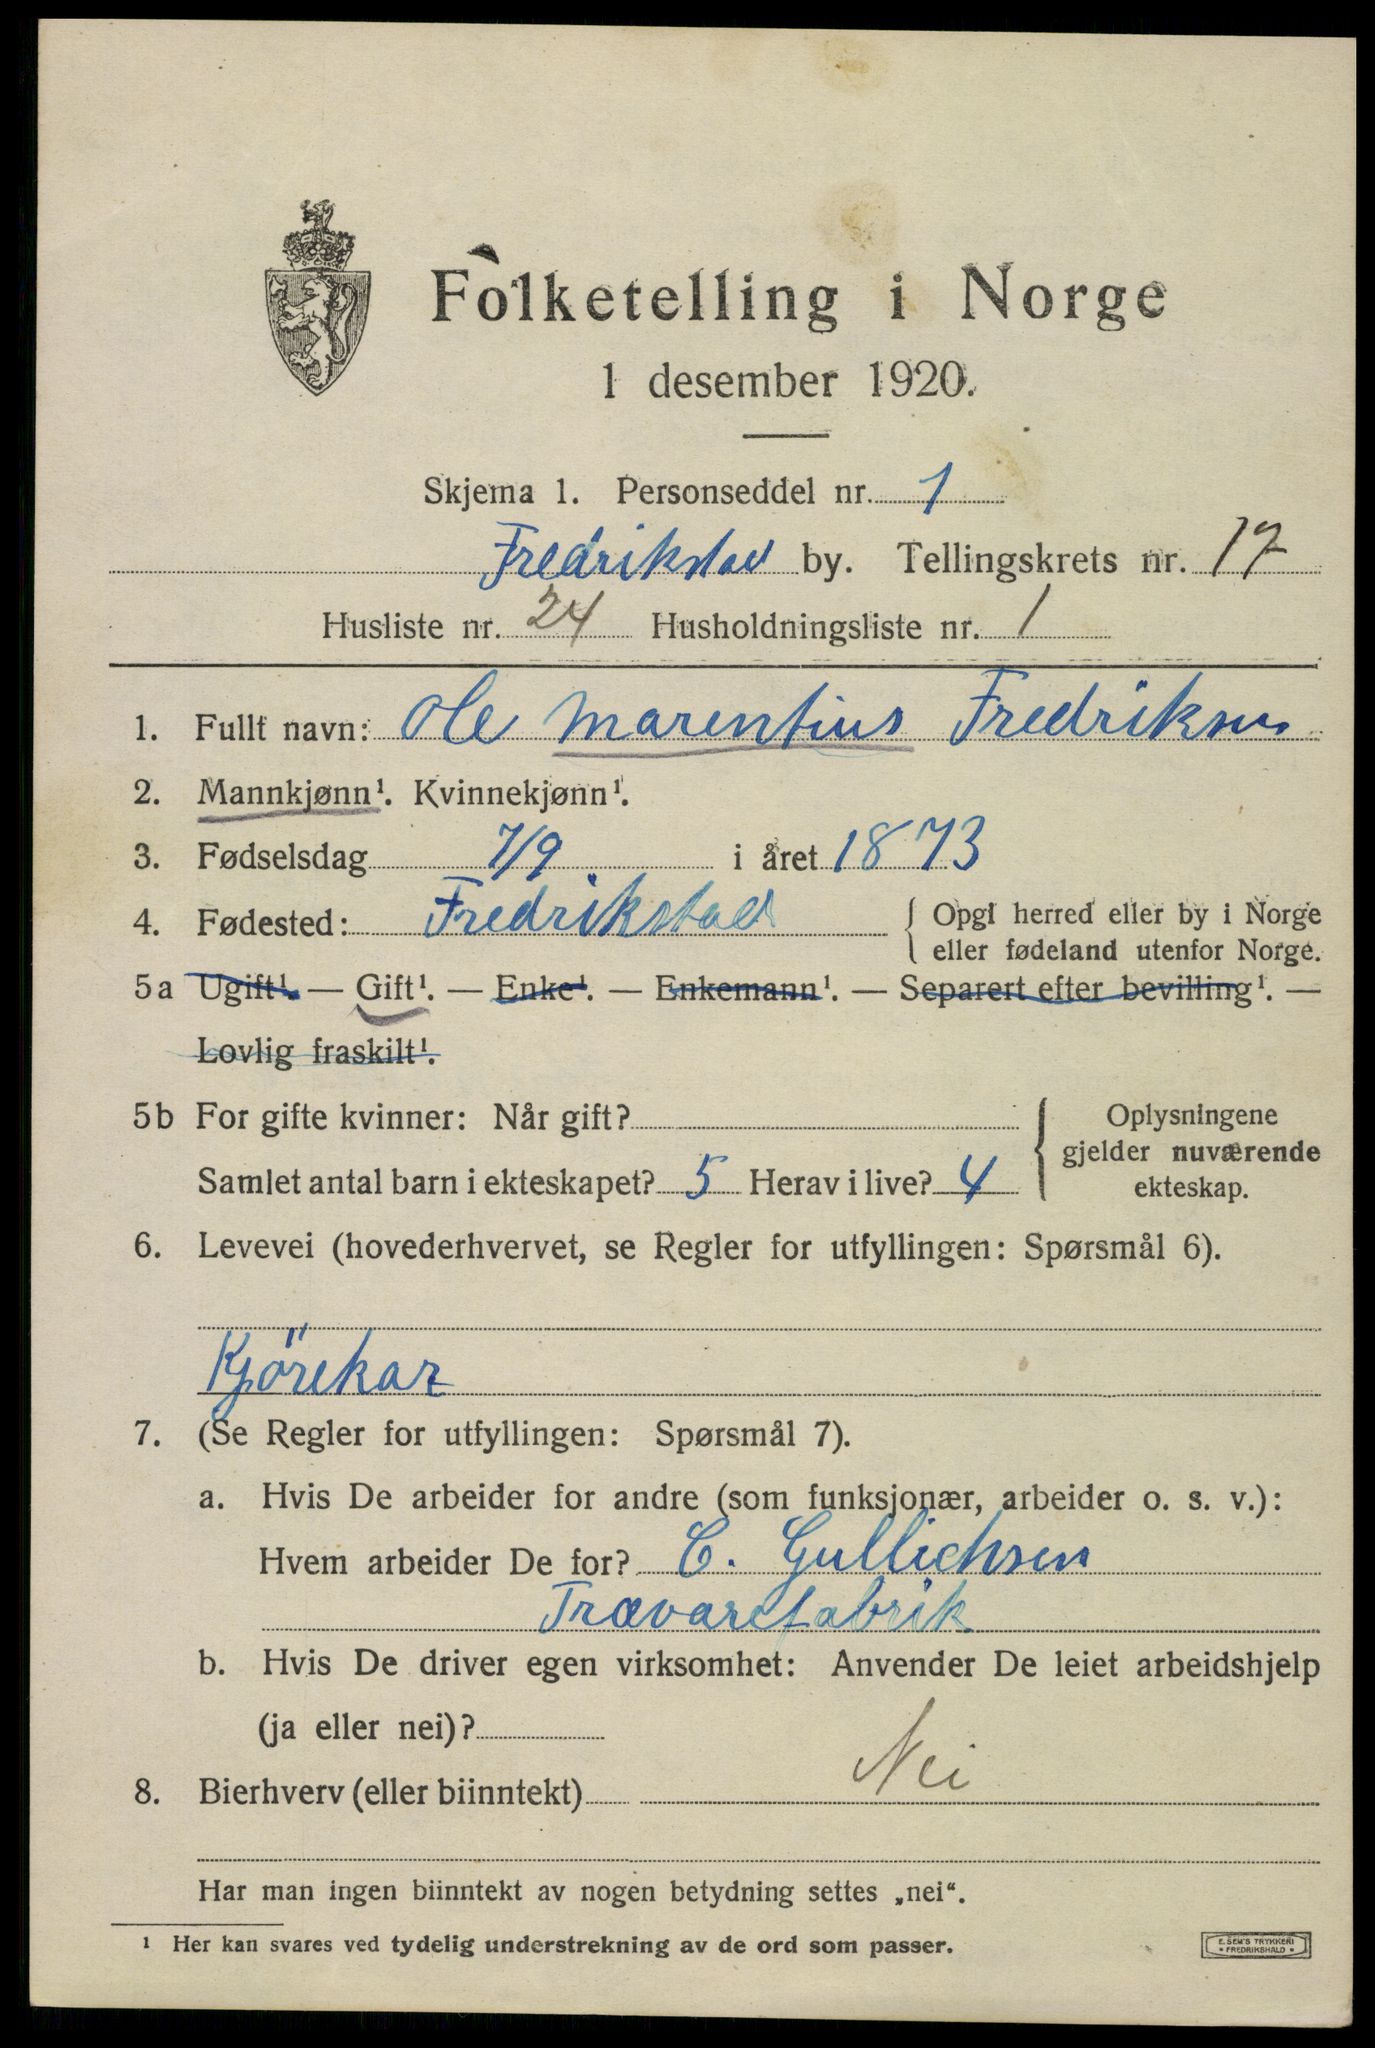 Folketelling i Norge
1 desember 1920.
Skjema 1. Personseddel nr. 1
Fredrikstad by. Tellingskrets nr. 17
Husliste nr. 24 Husholdningsliste nr. 1
1. Fullt navn: Ole Marentius Fredriksen
2. Mannkjønn¹. Kvinnekjønn¹.
3. Fødselsdag 7/9 i året 1873
4. Fødested: Fredrikstad { Opgi herred eller by i Norge
eller fødeland utenfor Norge.
5a Ugift¹. — Gift¹. — Enke¹. — Enkemann¹. — Separert efter bevilling¹. —
Lovlig fraskilt¹.
5b For gifte kvinner: Når gift? { Oplysningene
gjelder nuværende
Samlet antal barn i ekteskapet? 5 Herav i live? 4 ekteskap.
6. Levevei (hovederhvervet, se Regler for utfyllingen: Spørsmål 6).
Kjörekar
7. (Se Regler for utfyllingen: Spørsmål 7).
a. Hvis De arbeider for andre (som funksjonær, arbeider o. s. v.):
Hvem arbeider De for? C. Gullichsen
Trævarefabrik
b. Hvis De driver egen virksomhet: Anvender De leiet arbeidshjelp
(ja eller nei)?
8. Bierhverv (eller biinntekt) Nei
Har man ingen biinntekt av nogen betydning settes „nei“.
¹ Her kan svares ved tydelig understrekning av de ord som passer.
E. SEM'S TRYKKERI
• FREDRIKSHALD •